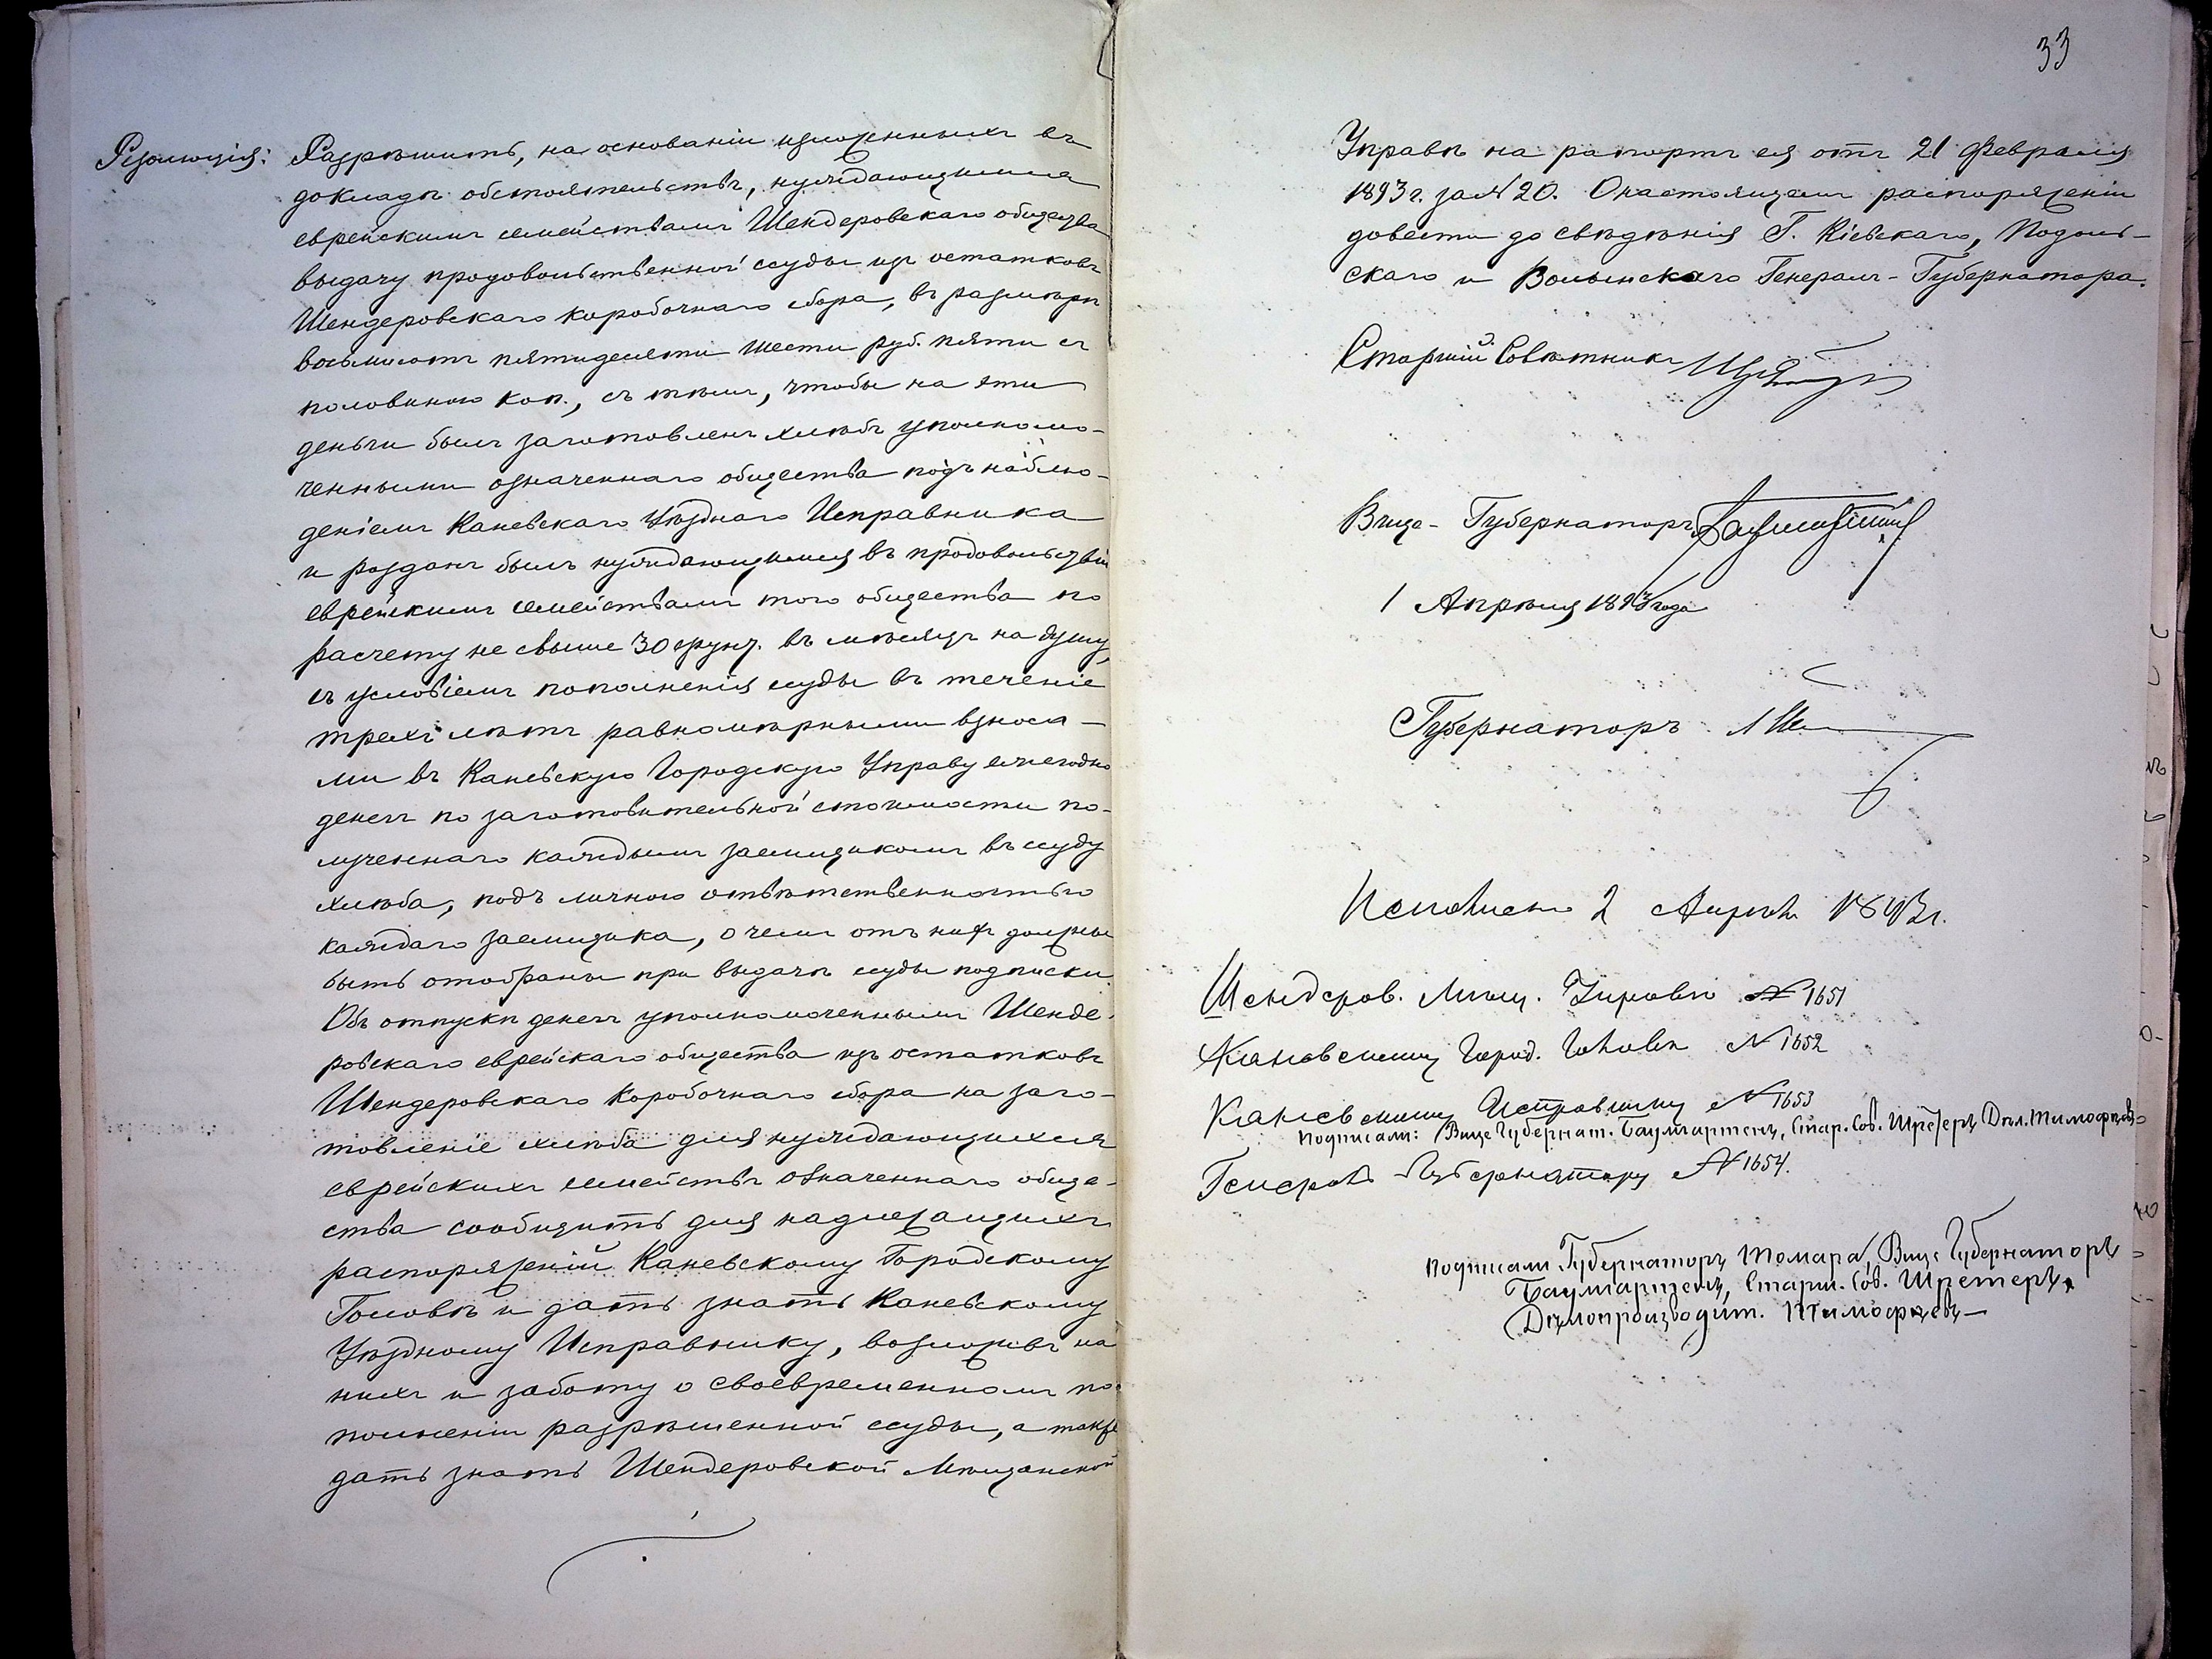 Резолюція: Разрѣшить, на основаніи изложенныхъ въ
докладѣ обстоятельствъ, нуждающимся
еврейскимъ семействамъ Шендеровскаго общества
выдачу продовольственной ссуды изъ остатковъ
Шендеровскаго коробочнаго сбора, въ размѣрѣ
восьмисотъ пятидесяти шести руб. пяти съ
половиною коп., съ тѣмъ, чтобы на эти
деньги былъ заготовленъ хлѣбъ уполномо-
ченными означеннаго общества подъ наблю-
деніемъ Каневскаго Уѣзднаго Исправника
и розданъ былъ нуждающимся въ продовольствіи
еврейскимъ семействамъ того общества по
расчету не свыше 30 фунт. въ мѣсяцъ на душу,
съ условіемъ пополненія ссуды въ теченіе
трехъ лѣтъ равномѣрными взноса-
ми въ Каневскую Городскую Управу ежегодно
денегъ по заготовительной стоимости по-
лученнаго каждымъ заемщикомъ въ ссуду
хлѣба, подъ личною отвѣтственностью
каждаго заемщика, о чемъ отъ нихъ должны
быть отобраны при выдачѣ ссуды подписки.
Объ отпускѣ денегъ уполномоченнымъ Шенде-
ровскаго еврейскаго общества изъ остатковъ
Шендеровскаго Коробочнаго сбора на заго-
товленіе хлѣба для нуждающихся
еврейскихъ семействъ означеннаго обще-
ства сообщить для надлежащихъ
распоряженій Каневскому Городскому
Головѣ и дать знать Каневскому
Уѣздному Исправнику, возложивъ на
нихъ и заботу о своевременномъ по-
полненіи разрѣшенной ссуды, а также
дать знать Шендеровской Мѣщанской
33
Управѣ на рапортъ ея отъ 21 Февраля
1893 г. за № 20. О настоящемъ распоряженіи
довести до свѣдѣнія Г. Кіевскаго, Подоль-
скаго и Волынскаго Генералъ-Губернатора.
Старшій Совѣтникъ
Вице-Губернаторъ Баумгартенъ
1 Апрѣля 1893 года
Губернаторъ
Исполнено 2 Апрѣля 1893 г.
Шендеров. Мѣщ. Управѣ № 1651
Каневскому Город. Головѣ № 1652
Каневскому Исправнику № 1653
Подписали: Вице Губернат. Баумгартенъ, Стар. Сов. Шретеръ, Дѣл. Тимофѣевъ
Генералъ-Губернатору № 1654.
Подписали Губернаторъ Томара, Вице Губернаторъ
Баумгартенъ, Старш. Сов. Шретеръ,
Дѣлопроизводит. Тимофѣевъ